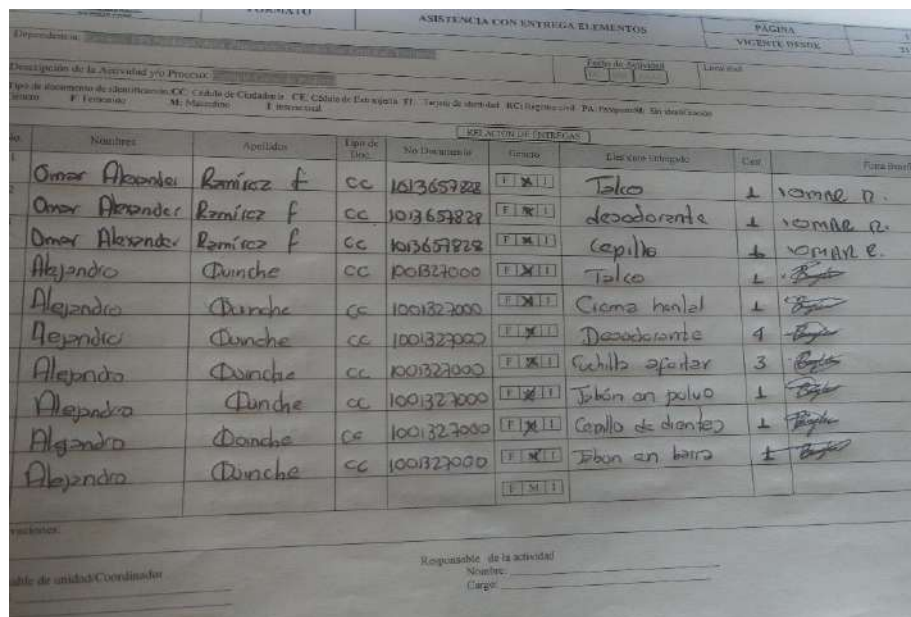 FORMATO
ASISTENCIA CON ENTREGA ELEMENTOS
PAGINA
VIGENTE DESDE
Dependencia:
Descripción de la Actividad y/o Proceso:
Fecho de Actividad
Tipo de documento de identificación CC: Cédula de Ciudadanía CE: Cédula de Extranjería TI: Tarjeta de identidad RC: Registro civil PA: Pasaporte SI: Sin identificación
F: Femenino M: Masculino I: Intersexual
RELACIÓN DE ENTREGAS
No. Nombres Apellidos Tipo de Doc. No Documento Genero Elemento Entregado Cant. Firma Benefi
Omar Alexander Ramírez f CC 1013657828 F M I Talco 1 OMAR R.
Omar Alexander Ramírez f CC 1013657828 F M I desodorante 1 OMAR R.
Omar Alexander Ramírez f CC 1013657828 F M I Cepillo 1 OMAR R.
Alejandro Quinche CC 1001327000 F M I Talco 1
Alejandro Quinche CC 1001327000 F M I Crema 1
Alejandro Quinche CC 1001327000 F M I Desodorante 4
Alejandro Quinche CC 1001327000 F M I Cuchilla afeitar 3
Alejandro Quinche CC 1001327000 F M I Jabón en polvo 1
Alejandro Quinche CC 1001327000 F M I Cepillo de dientes 1
Alejandro Quinche CC 1001327000 F M I Jabon en barra 1
F M I
vaciones:
able de unidad/Coordinador
Responsable de la actividad
Nombre:
Cargo: